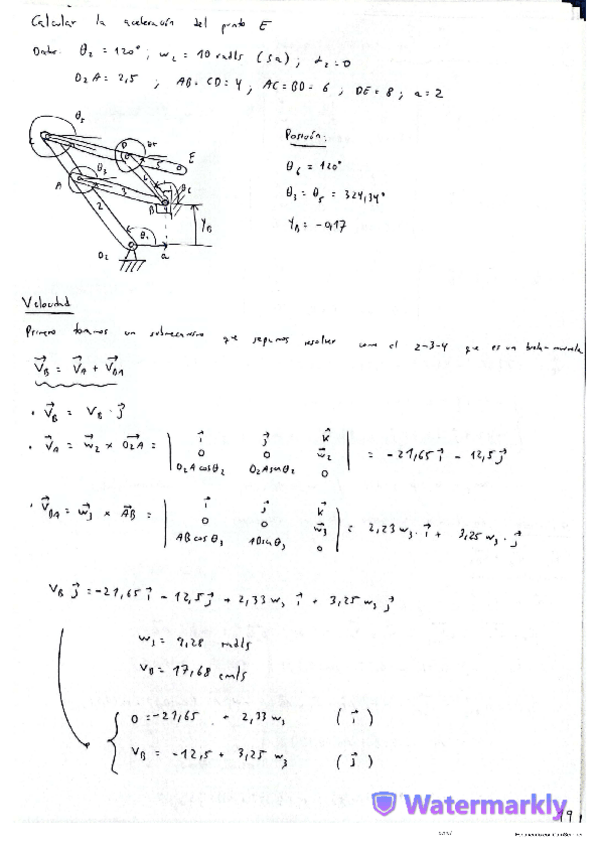 Calcular la aceleración del punto E
Datos: θ₂ = 120° ; w₂ = 10 rad/s (sa) ; α₂ = 0
O₂A = 2,5 ; AB = CD = 4 ; AC = BD = 6 ; DE = 8 ; a = 2
θ₅
D
θ₅
E
C
5
θ₃
6
θ₆
A
3
B
4
2
y_B
θ₂
O₂
a
Posición:
θ₆ = 120°
θ₃ = θ₅ = 324,34°
y_B = -0,17
Velocidad
Primero tomamos un submecanismo que sepamos resolver como el 2-3-4 que es un biela-manivela
V⃗_B = V⃗_A + V⃗_BA
· V⃗_B = V_B · j⃗
· V⃗_A = w⃗₂ x O₂A⃗ = | i⃗ j⃗ k⃗ |
0 0 w⃗₂
O₂A cosθ₂ O₂A senθ₂ 0
= -21,65 i⃗ - 12,5 j⃗
· V⃗_BA = w⃗₃ x AB⃗ = | i⃗ j⃗ k⃗ |
0 0 w⃗₃
AB cosθ₃ AB senθ₃ 0
= 2,23 w₃ · i⃗ + 3,25 w₃ · j⃗
V_B j⃗ = -21,65 i⃗ - 12,5 j⃗ + 2,33 w₃ i⃗ + 3,25 w₃ j⃗
w₃ = 9,28 rad/s
V_B = 17,68 cm/s
0 = -21,65 + 2,33 w₃ ( i⃗ )
V_B = -12,5 + 3,25 w₃ ( j⃗ )
Watermarkly